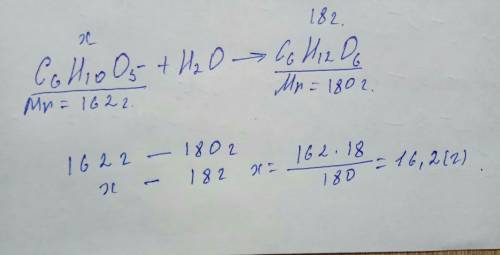 x 18 г.
C₆H₁₀O₅ + H₂O → C₆H₁₂O₆
Mr = 162 г. Mr = 180 г.
162 г — 180 г
x — 18 г x = 162 · 18 / 180 = 16,2 (г).